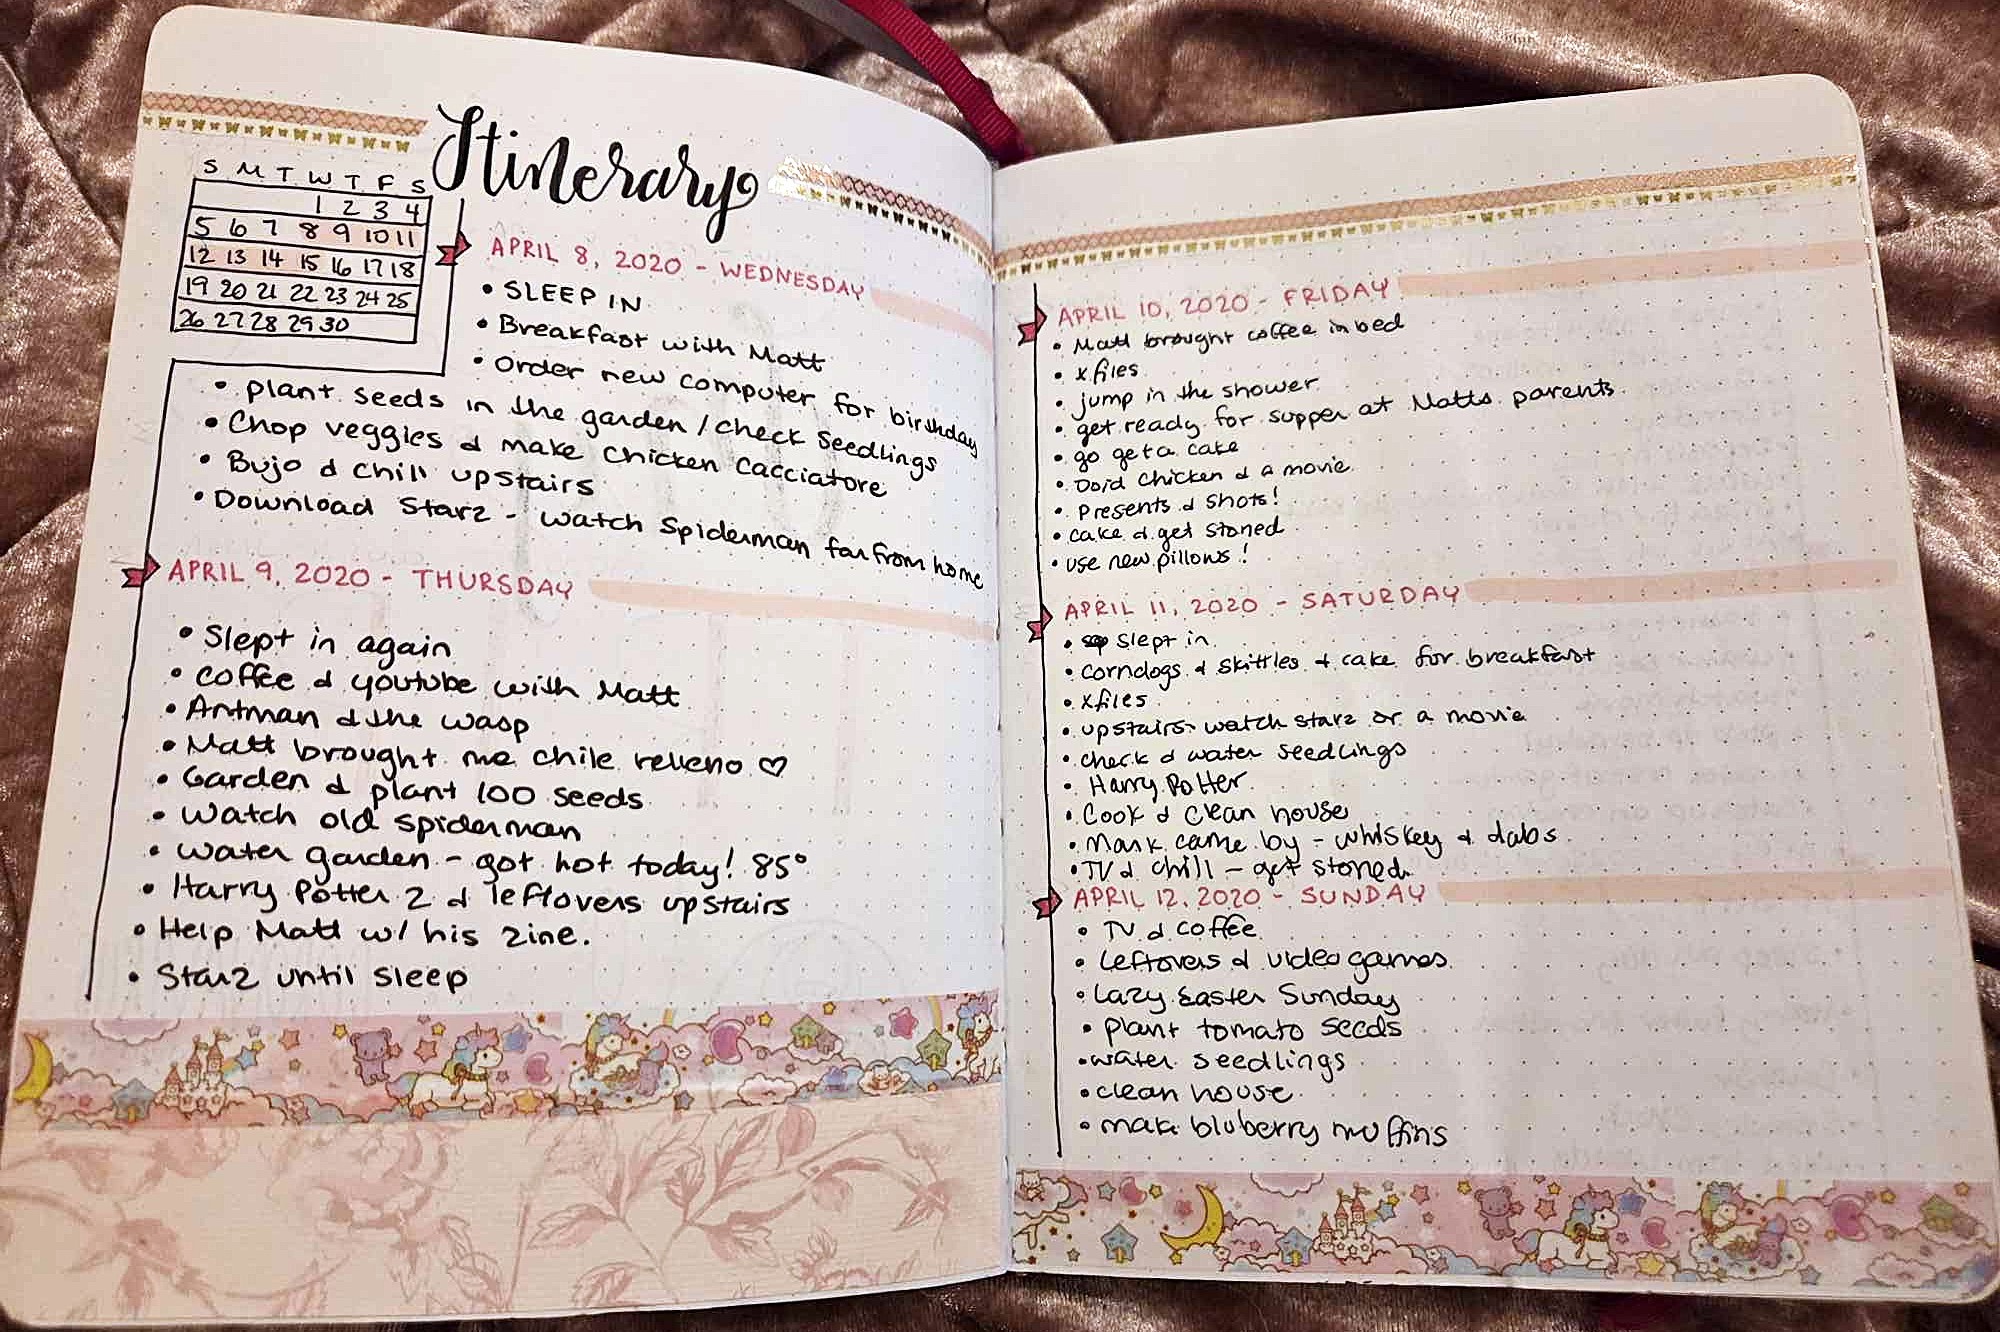 Itinerary
S M T W T F S
1 2 3 4
5 6 7 8 9 10 11
12 13 14 15 16 17 18
19 20 21 22 23 24 25
26 27 28 29 30
APRIL 8, 2020 - WEDNESDAY
• SLEEP IN
• Breakfast with Matt
• Order new computer for birthday
• plant seeds in the garden / check seedlings
• Chop veggies & make chicken cacciatore
• Bujo & chill upstairs
• Download Starz - watch Spiderman far from home
APRIL 9, 2020 - THURSDAY
• Slept in again
• coffee & youtube with Matt
• Antman & the wasp
• Matt brought me chile relleno ♡
• Garden & plant 100 seeds
• watch old spiderman
• water garden - got hot today! 85°
• Harry Potter 2 & leftovers upstairs
• Help Matt w/ his zine.
• Starz until sleep
APRIL 10, 2020 - FRIDAY
• Matt brought coffee in bed
• x files
• jump in the shower
• get ready for supper at Matts parents
• go get a cake
• chicken & a movie
• Presents & shots!
• cake & get stoned
• use new pillows!
APRIL 11, 2020 - SATURDAY
• slept in
• corndogs & skittles & cake for breakfast
• xfiles
• upstairs watch starz or a movie
• check & water seedlings
• Harry Potter
• Cook & clean house
• Mark came by - whiskey & dabs
• TV & chill - get stoned
APRIL 12, 2020 - SUNDAY
• TV & coffee
• leftovers & videogames
• Lazy Easter Sunday
• plant tomato seeds
• water seedlings
• clean house
• make bluberry muffins